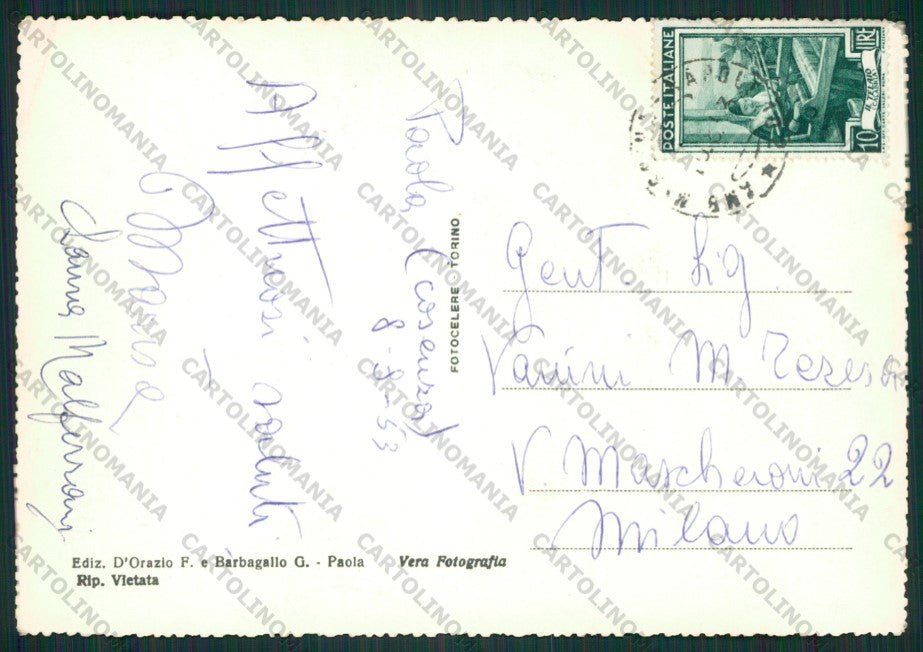 Paola (cosenza)
8-9-53
Affettuosi saluti
Maria
Malferrari
FOTOCELERE - TORINO.
POSTE ITALIANE
LIRE
10
IL TELAIO
NAPOLI
AMB.
Gent. Sig
Vanini M Teresa
V. Mascheroni 22
Milano
Ediz. D'Orazio F. e Barbagallo G. - Paola Vera Fotografia
Rip. Vietata
CARTOLINOMANIA